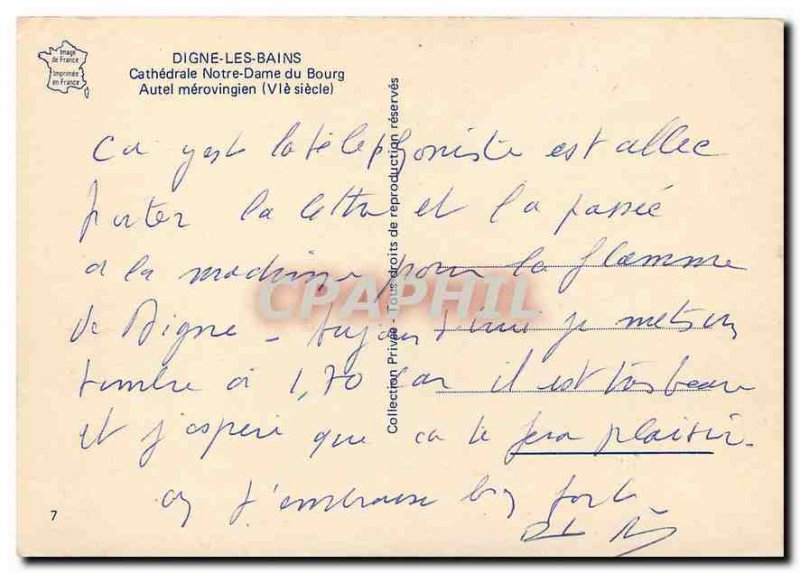 Image
de France
Imprimée
en France
DIGNE-LES-BAINS
Cathédrale Notre-Dame du Bourg
Autel mérovingien (VIè siècle)
Ca y est la téléphoniste est allee
porter la lettre et la passée
a la machine pour la flamme
de Digne - aujourd'hui je mets un
timbre à 1,70 car il est très beau
et j'espere que ca te fera plaisir.
J'embrasse bien fort
Collection Privée - Tous droits de reproduction réservés
CPAPHIL
7